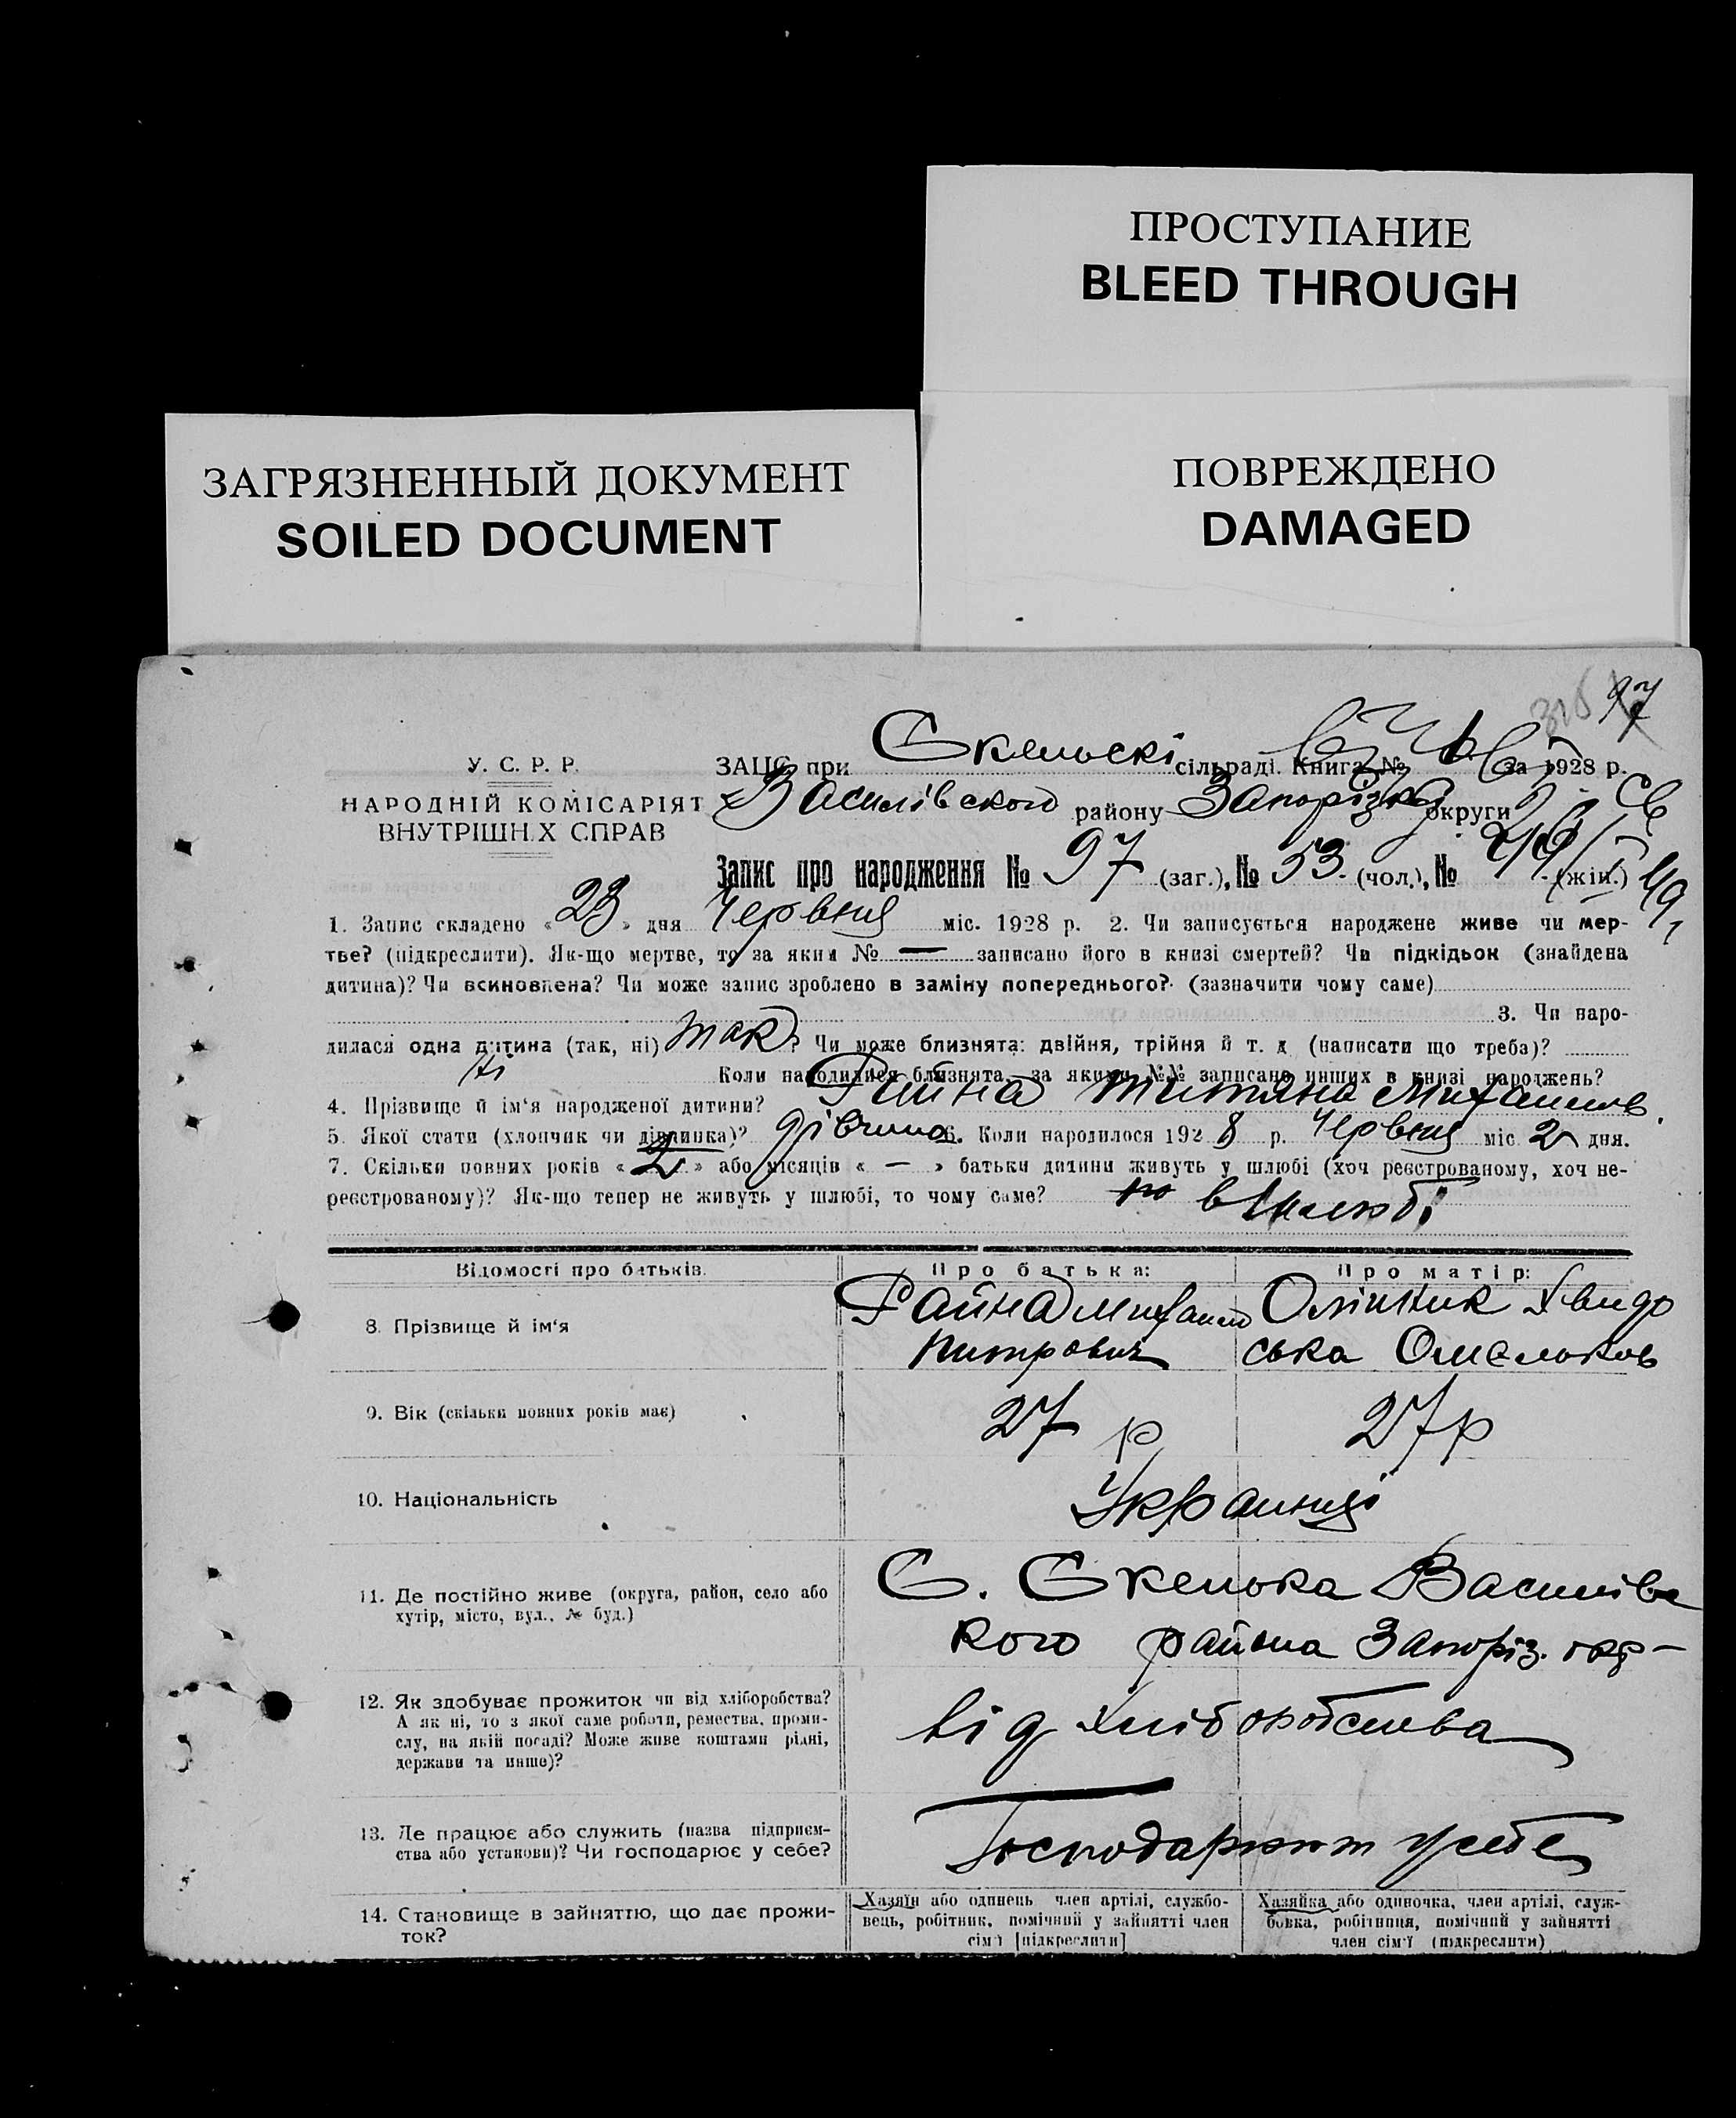 ПРОСТУПАНИЕ
BLEED THROUGH
ЗАГРЯЗНЕННЫЙ ДОКУМЕНТ
SOILED DOCUMENT
ПОВРЕЖДЕНО
DAMAGED
97
У. С. Р. Р.
НАРОДНІЙ КОМІСАРІЯТ
ВНУТРІШН Х СПРАВ
ЗАЦС при Скельскі сільраді. Книга № за 1928 р.
Василівского району Запорізкої округи
Запис про народження № 97 (заг.), № 53 (чол.), № (жін.)
1. Запис складено « 23 » дня Червня міс. 1928 р. 2. Чи записується народжене живе чи мер-
тве? (підкреслити). Як-що мертве, то за яким № — записано його в книзі смертей? Чи підкідьок (знайдена
дитина)? Чи всиновлена? Чи може запис зроблено в заміну попереднього? (зазначити чому саме)
3. Чи наро-
дилася одна дитина (так, ні) так? Чи може близнята: двійня, трійня й т. д (написати що треба)?
ні Коли народилися близнята, за якими №№ записано инших в книзі народжень?
4. Прізвище й ім'я народженої дитини? Райна Титяна Михаилов.
5. Якої стати (хлопчик чи дівчинка)? дівчина 6. Коли народилося 1928 р. Червня міс 2 дня.
7. Скільки повних років « 2 » або місяців « — » батьки дитини живуть у шлюбі (хоч реєстрованому, хоч не-
реєстрованому)? Як-що тепер не живуть у шлюбі, то чому саме? в шлюбі
Відомості про батьків.
Про батька:
Про матір:
8. Прізвище й ім'я
Райна Михаило
Питрович
Олійник Хвидо
ська Омельков
9. Вік (скільки повних років має)
27 р
27 р
10. Національність
Украинці
11. Де постійно живе (округа, район, село або
хутір, місто, вул., № буд.)
С. Скелька Василівс
кого района Запоріз. окр-
12. Як здобуває прожиток чи від хліборобства?
А як ні, то з якої саме роботи, ремества, проми-
слу, на якій посаді? Може живе коштами рідні,
держави та инше)?
від хліборобства
13. Де працює або служить (назва підприєм-
ства або установи)? Чи господарює у себе?
Господарюют усебе
14. Становище в зайняттю, що дає прожи-
ток?
Хазяїн або одинець член артілі, службо-
вець, робітник, помічний у зайнятті член
сім'ї [підкреслити]
Хазяйка або одиночка, член артілі, служ-
бовка, робітниця, помічний у зайнятті
член сім'ї (підкреслити)